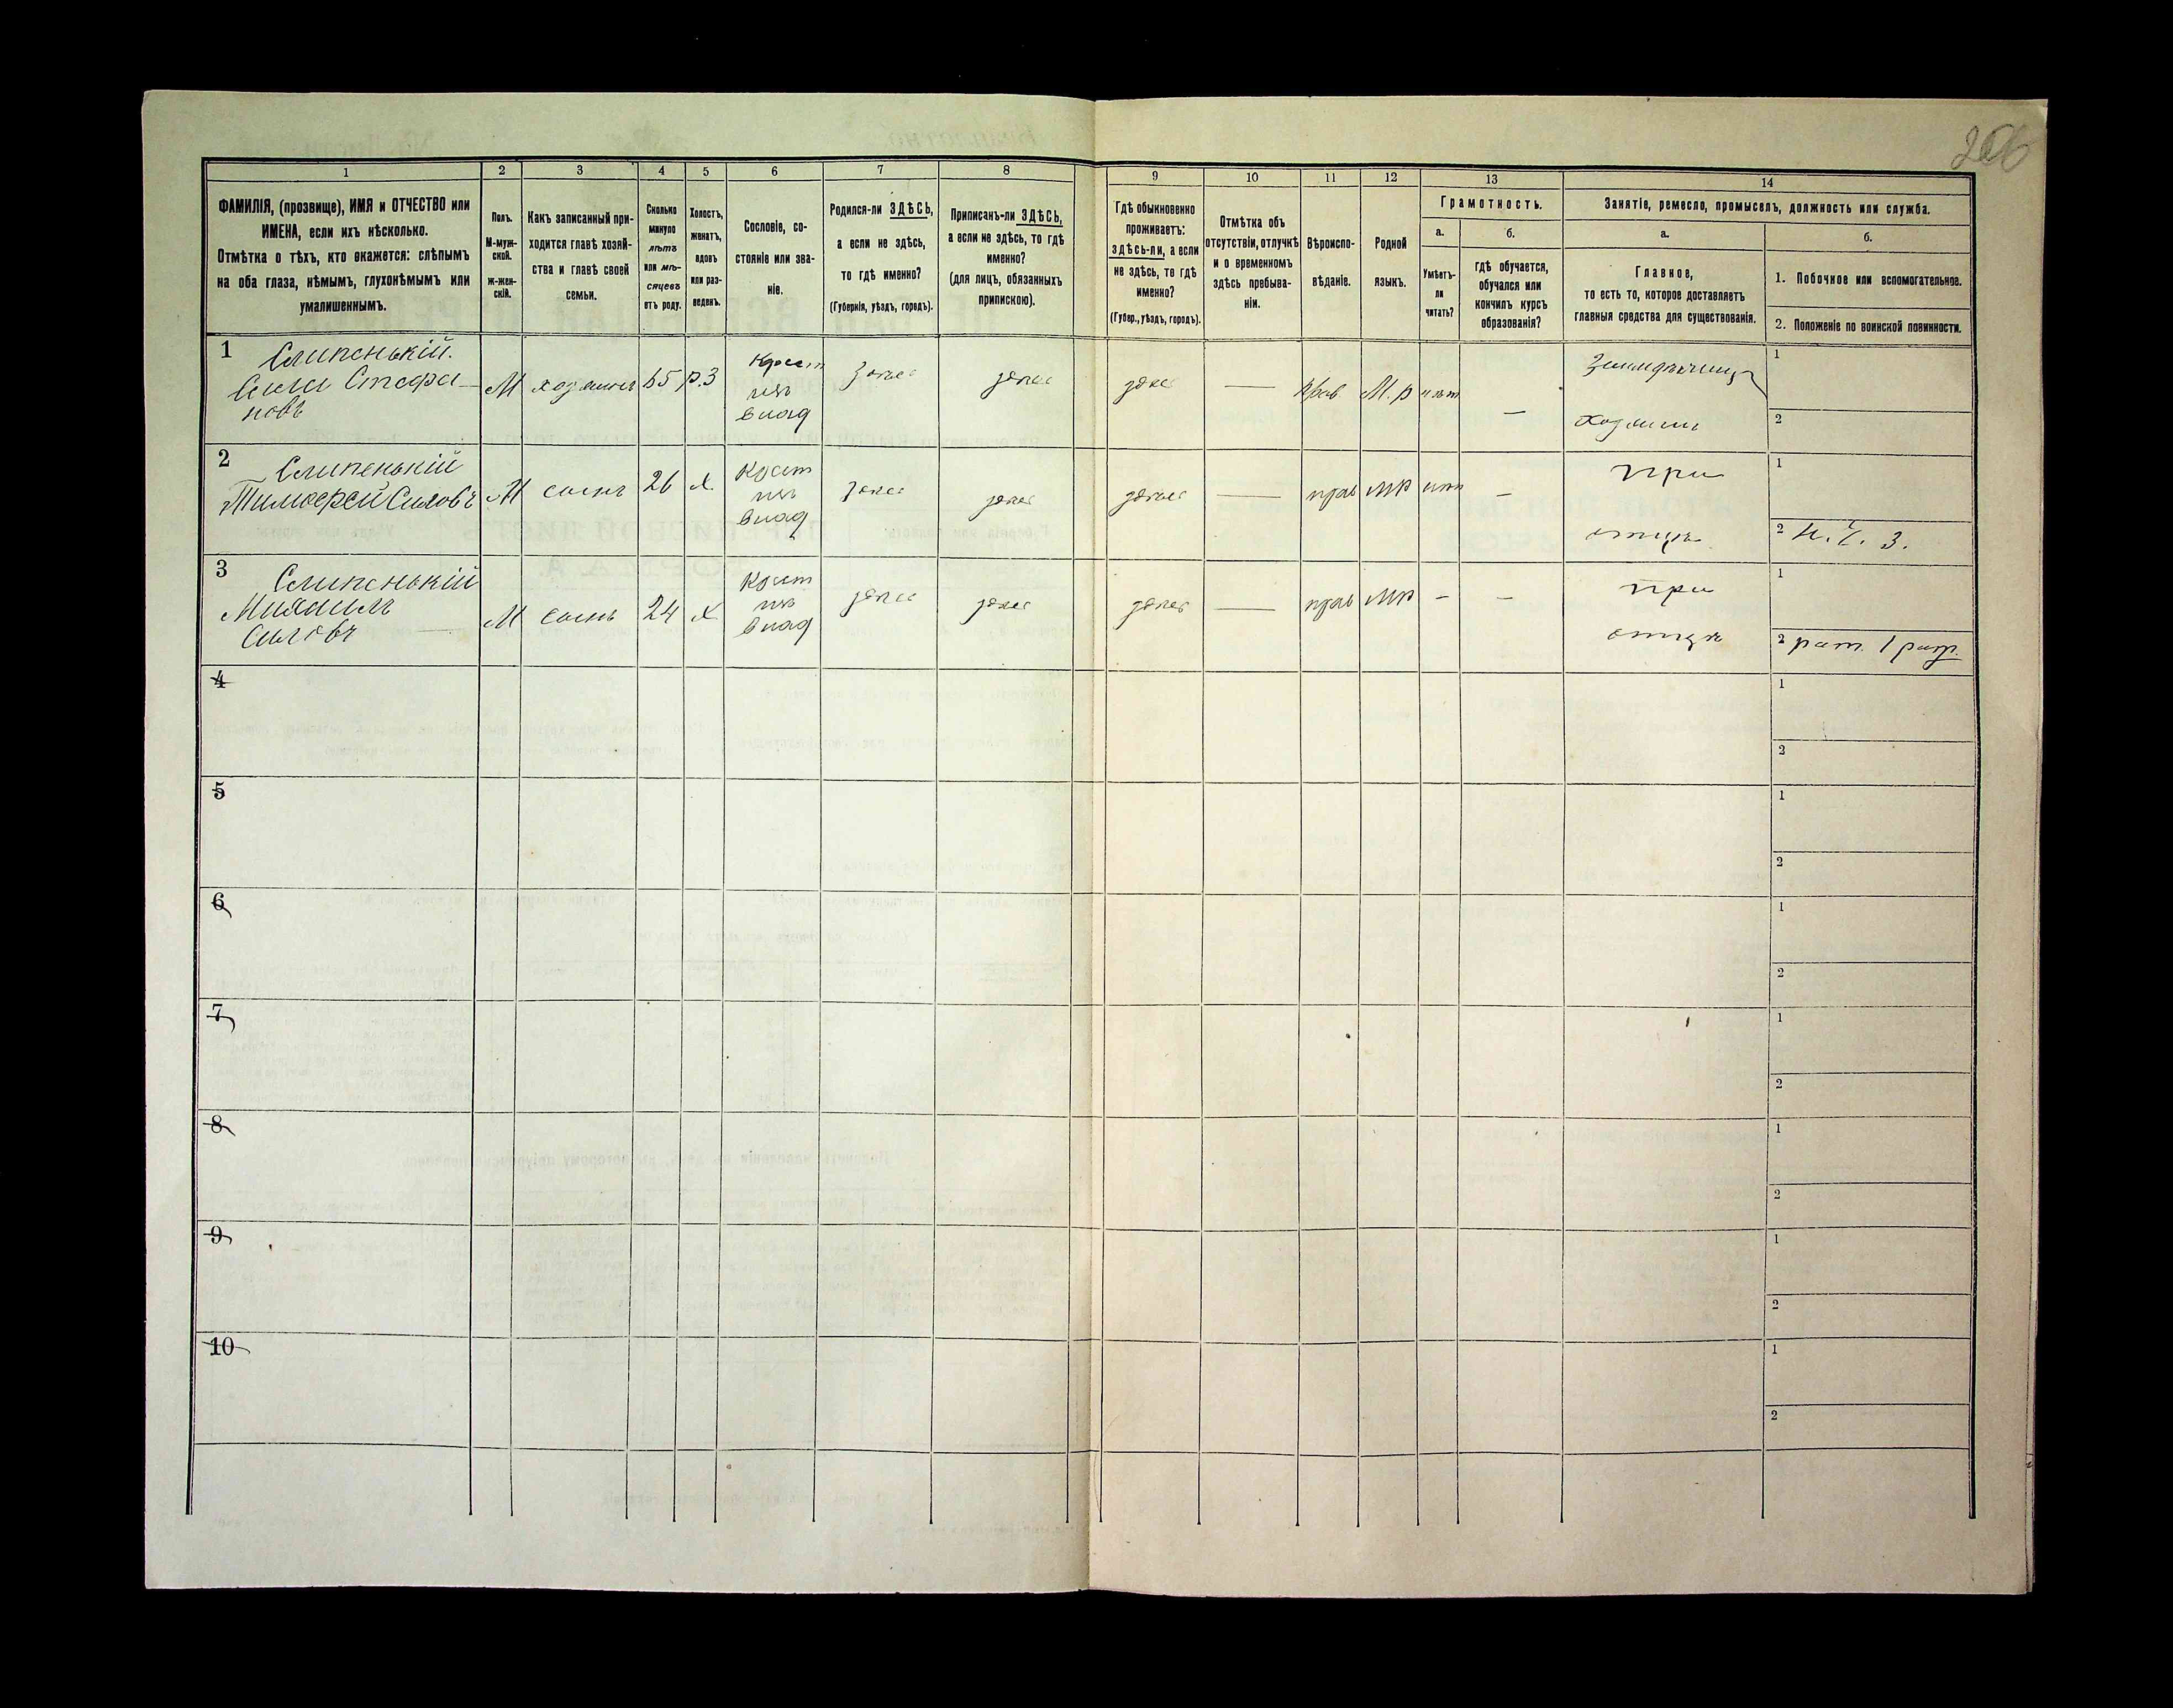 1
ФАМИЛІЯ, (прозвище), ИМЯ и ОТЧЕСТВО или
ИМЕНА, если ихъ нѣсколько.
Отмѣтка о тѣхъ, кто окажется: слѣпымъ
на оба глаза, нѣмымъ, глухонѣмымъ или
умалишеннымъ.
2
Полъ.
М-муж-
ской.
Ж-жен-
скій.
3
Какъ записанный при-
ходится главѣ хозяй-
ства и главѣ своей
семьи.
4
Сколько
минуло
лѣтъ
или мѣ-
сяцевъ
отъ роду.
5
Холостъ,
женатъ,
вдовъ
или раз-
веденъ.
6
Сословіе, со-
стояніе или зва-
ніе.
7
Родился-ли ЗДѢСЬ,
а если не здѣсь,
то гдѣ именно?
(Губернія, уѣздъ, городъ).
8
Приписанъ-ли ЗДѢСЬ,
а если не здѣсь, то гдѣ
именно?
(для лицъ, обязанныхъ
припискою).
9
Гдѣ обыкновенно
проживаетъ:
здѣсь-ли, а если
не здѣсь, то гдѣ
именно?
(Губер., уѣздъ, городъ).
10
Отмѣтка объ
отсутствіи, отлучкѣ
и о временномъ
здѣсь пребыва-
ніи.
11
Вѣроиспо-
вѣданіе.
12
Родной
языкъ.
13
Грамотность.
а.
Умѣетъ-
ли
читать?
б.
гдѣ обучается,
обучался или
кончилъ курсъ
образованія?
14
Занятіе, ремесло, промыселъ, должность или служба.
а.
Главное,
то есть то, которое доставляетъ
главныя средства для существованія.
б.
1. Побочное или вспомогательное.
2. Положеніе по воинской повинности.
1
Слипенькій.
Сила Стефа-
новъ
М
хозяинъ
р.з
Крест
изъ
влад
здѣсь
здѣсь
здѣсь
—
Прав
М.р
нѣт
—
Хозяинъ
1
2
2
Слипенькій
Тимофей Силовъ
М
сынъ
26
х.
Крест
изъ
влад
здѣсь
здѣсь
здѣсь
—
прав
МР
нѣт
—
при
отцѣ
1
2 Н. Ч. З.
3
Слипенькій
Михаилъ
Силовъ —
М
сынъ
24
х
Крест
изъ
влад
здѣсь
здѣсь
здѣсь
—
прав
МР
–
–
при
отцѣ
1
2 рат. 1 раз.
4
1
2
5
1
2
6
1
2
7
1
2
8
1
2
9
1
2
10
1
2